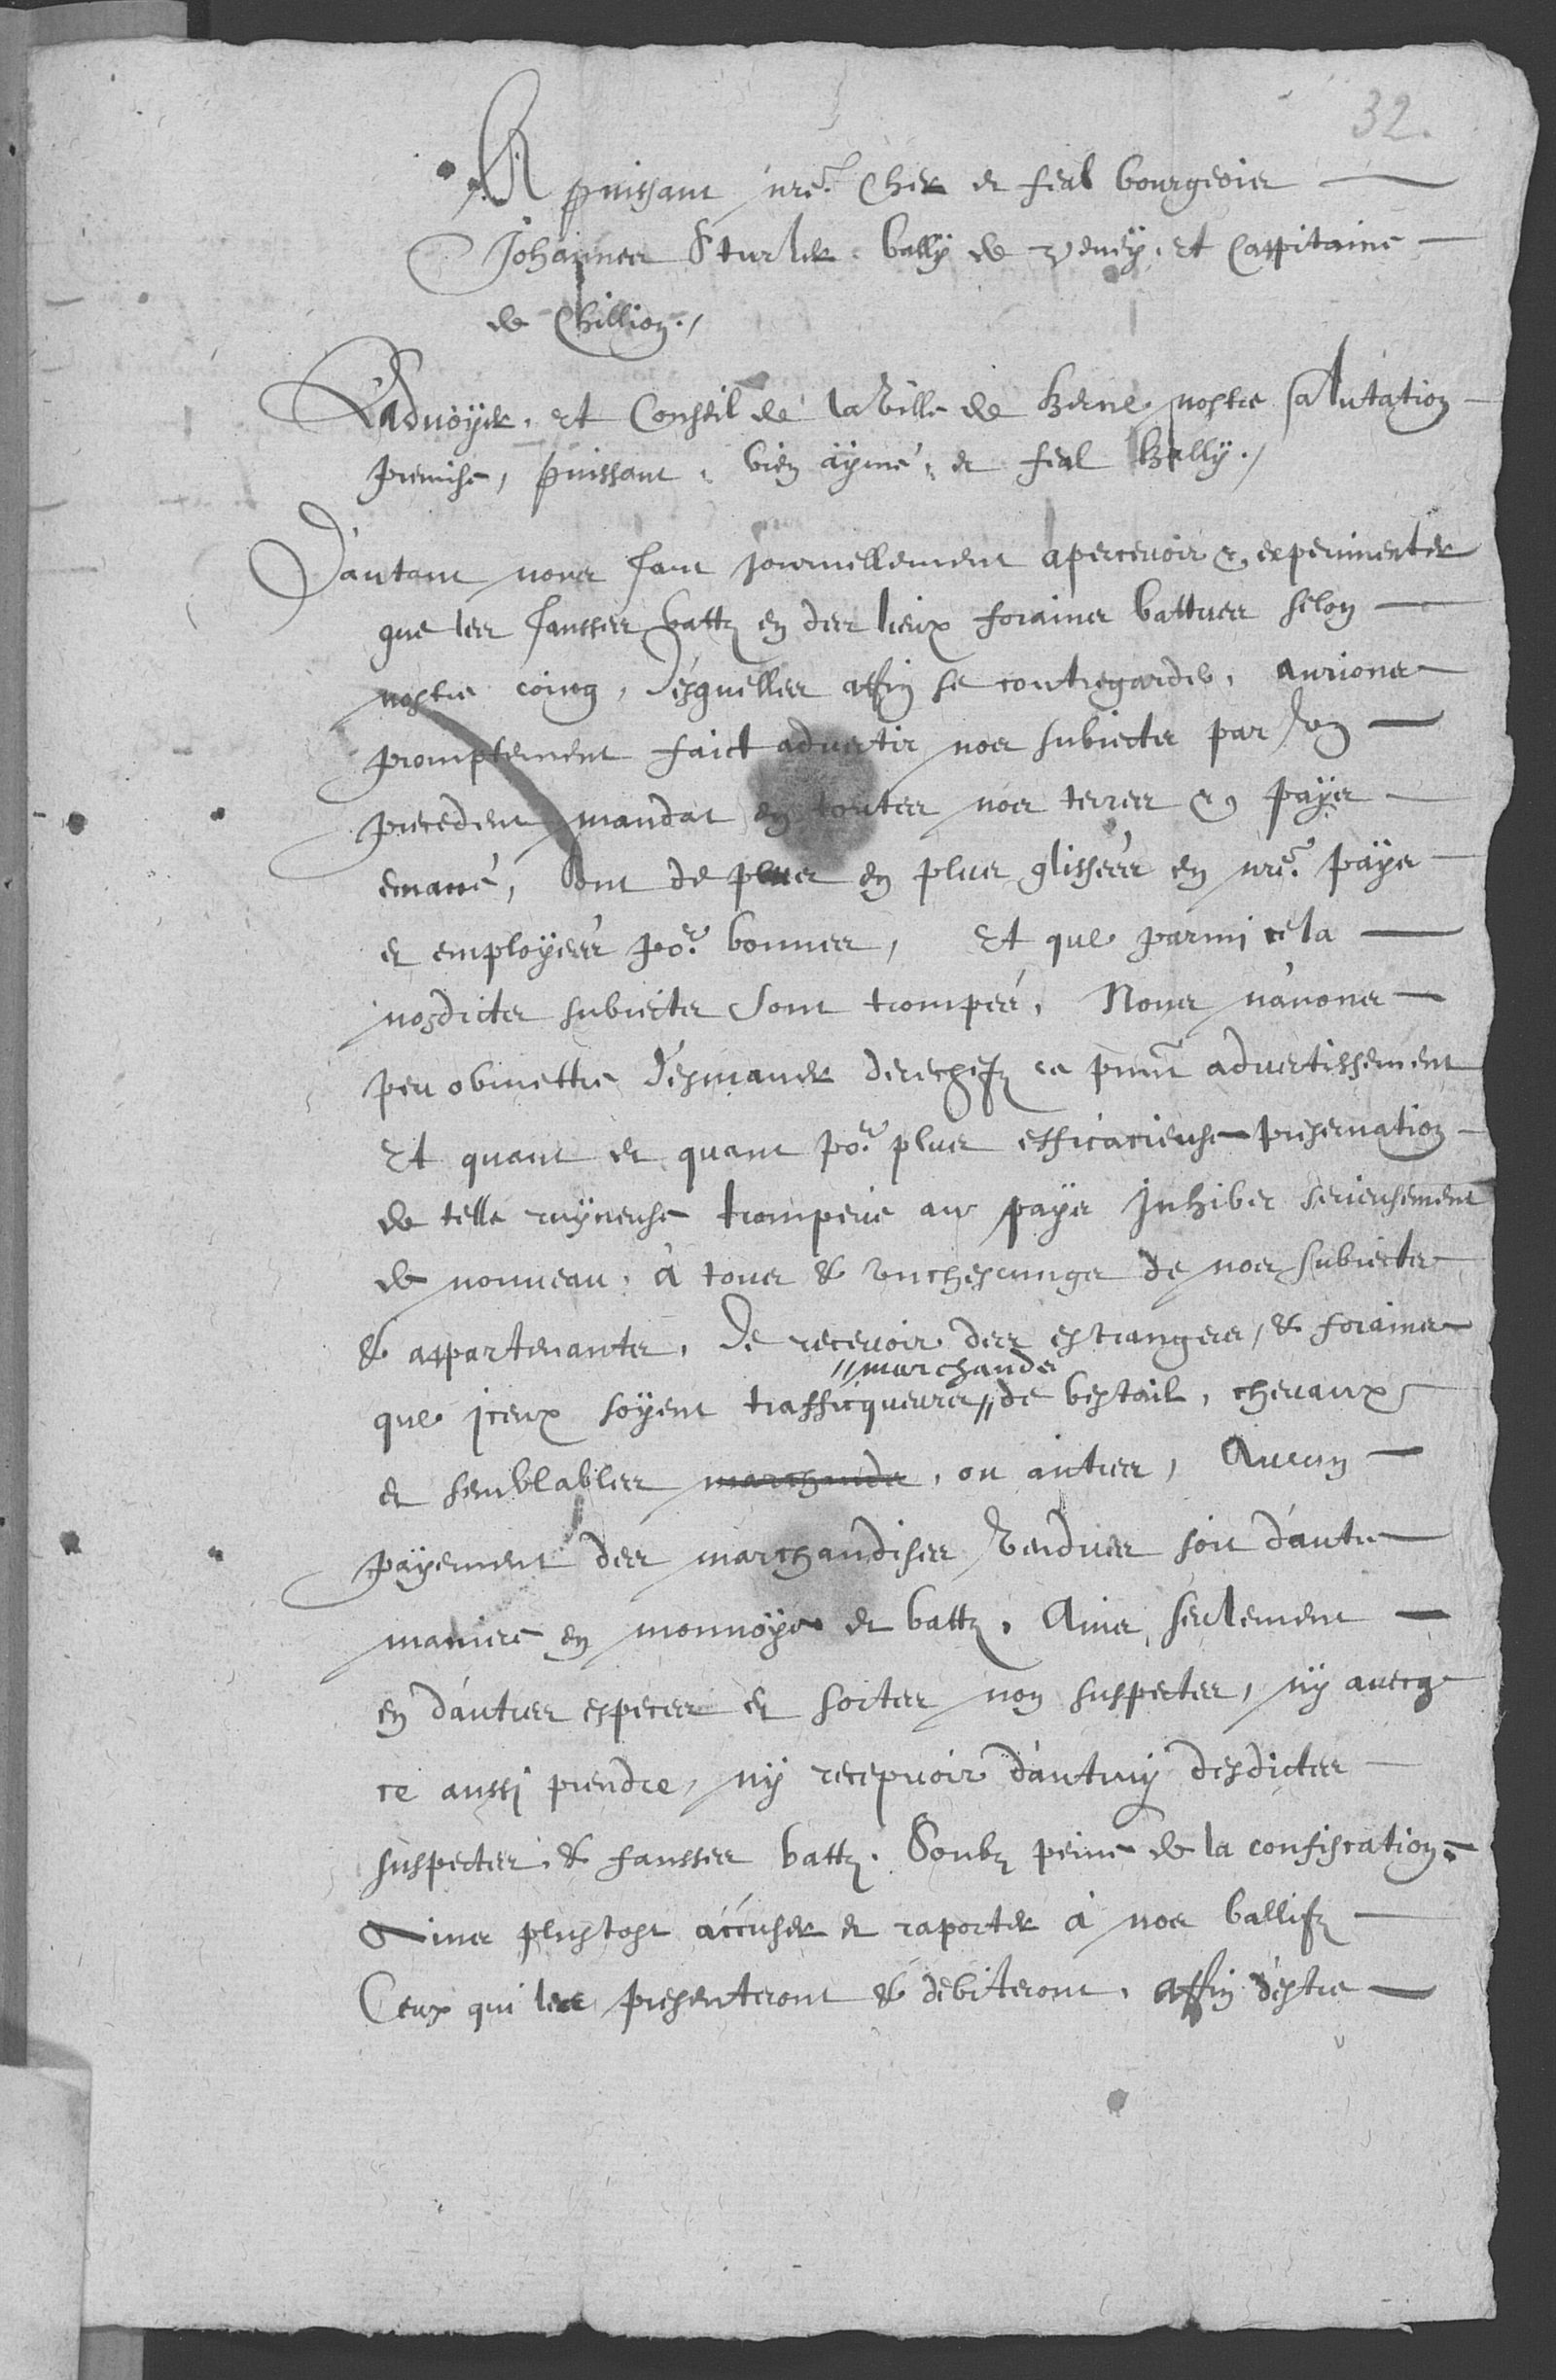 32.
A puissant nre. Cher et feal bourgeois
Johannes Sturler. bally de Vevey. et Cappitaine
de Chillion./
L'advoyer. et Conseil de la Ville de Berne, nostre salutation
premise, puissant. bien aymé, et feal Bally./
D'autant nous faut journellement apercevoir & experimenter
que les fausses battz en des lieux forains battues selon
nostre coing, desquelles affin se contregarder, aurions
promptement faict advertir nos subiects par un
precedent mandat en toutes nos terres & pays
emané, Sont de plus en plus glisseés en nre. pays
et employeés por. bonnes, Et que parmi cela
nosdicts subiects sont trompés, Nous n'avons
peu obmettre d'esmaner derechefz ce pnt advertissement
Et quant et quant por. plus efficacieuse preservation
de telle ruyneuse tromperie au pays Inhiber serieusement
de nouveau. à tous & unchescungs de nos subiects
& appartenants. de recevoir des estrangers, & forains
"marchands
que iceux soyent trafficqueurs "de bestail, chevaux
et semblables marchands, ou autres, Aucun
payement des marchandises Vendues soit d'autre
maniere en monnoye de battz. Ains seulement
en d'autres especes et sortes non suspectes, ny avecq
ce aussi prendre, ny recepvoir d'autruy desdictes
suspectes & fausses battz. Soubz peine de la confiscation.
Ains plustost accuser et raporter à nos ballifz
Ceux qui les presenteront & debiteront. affin d'estre